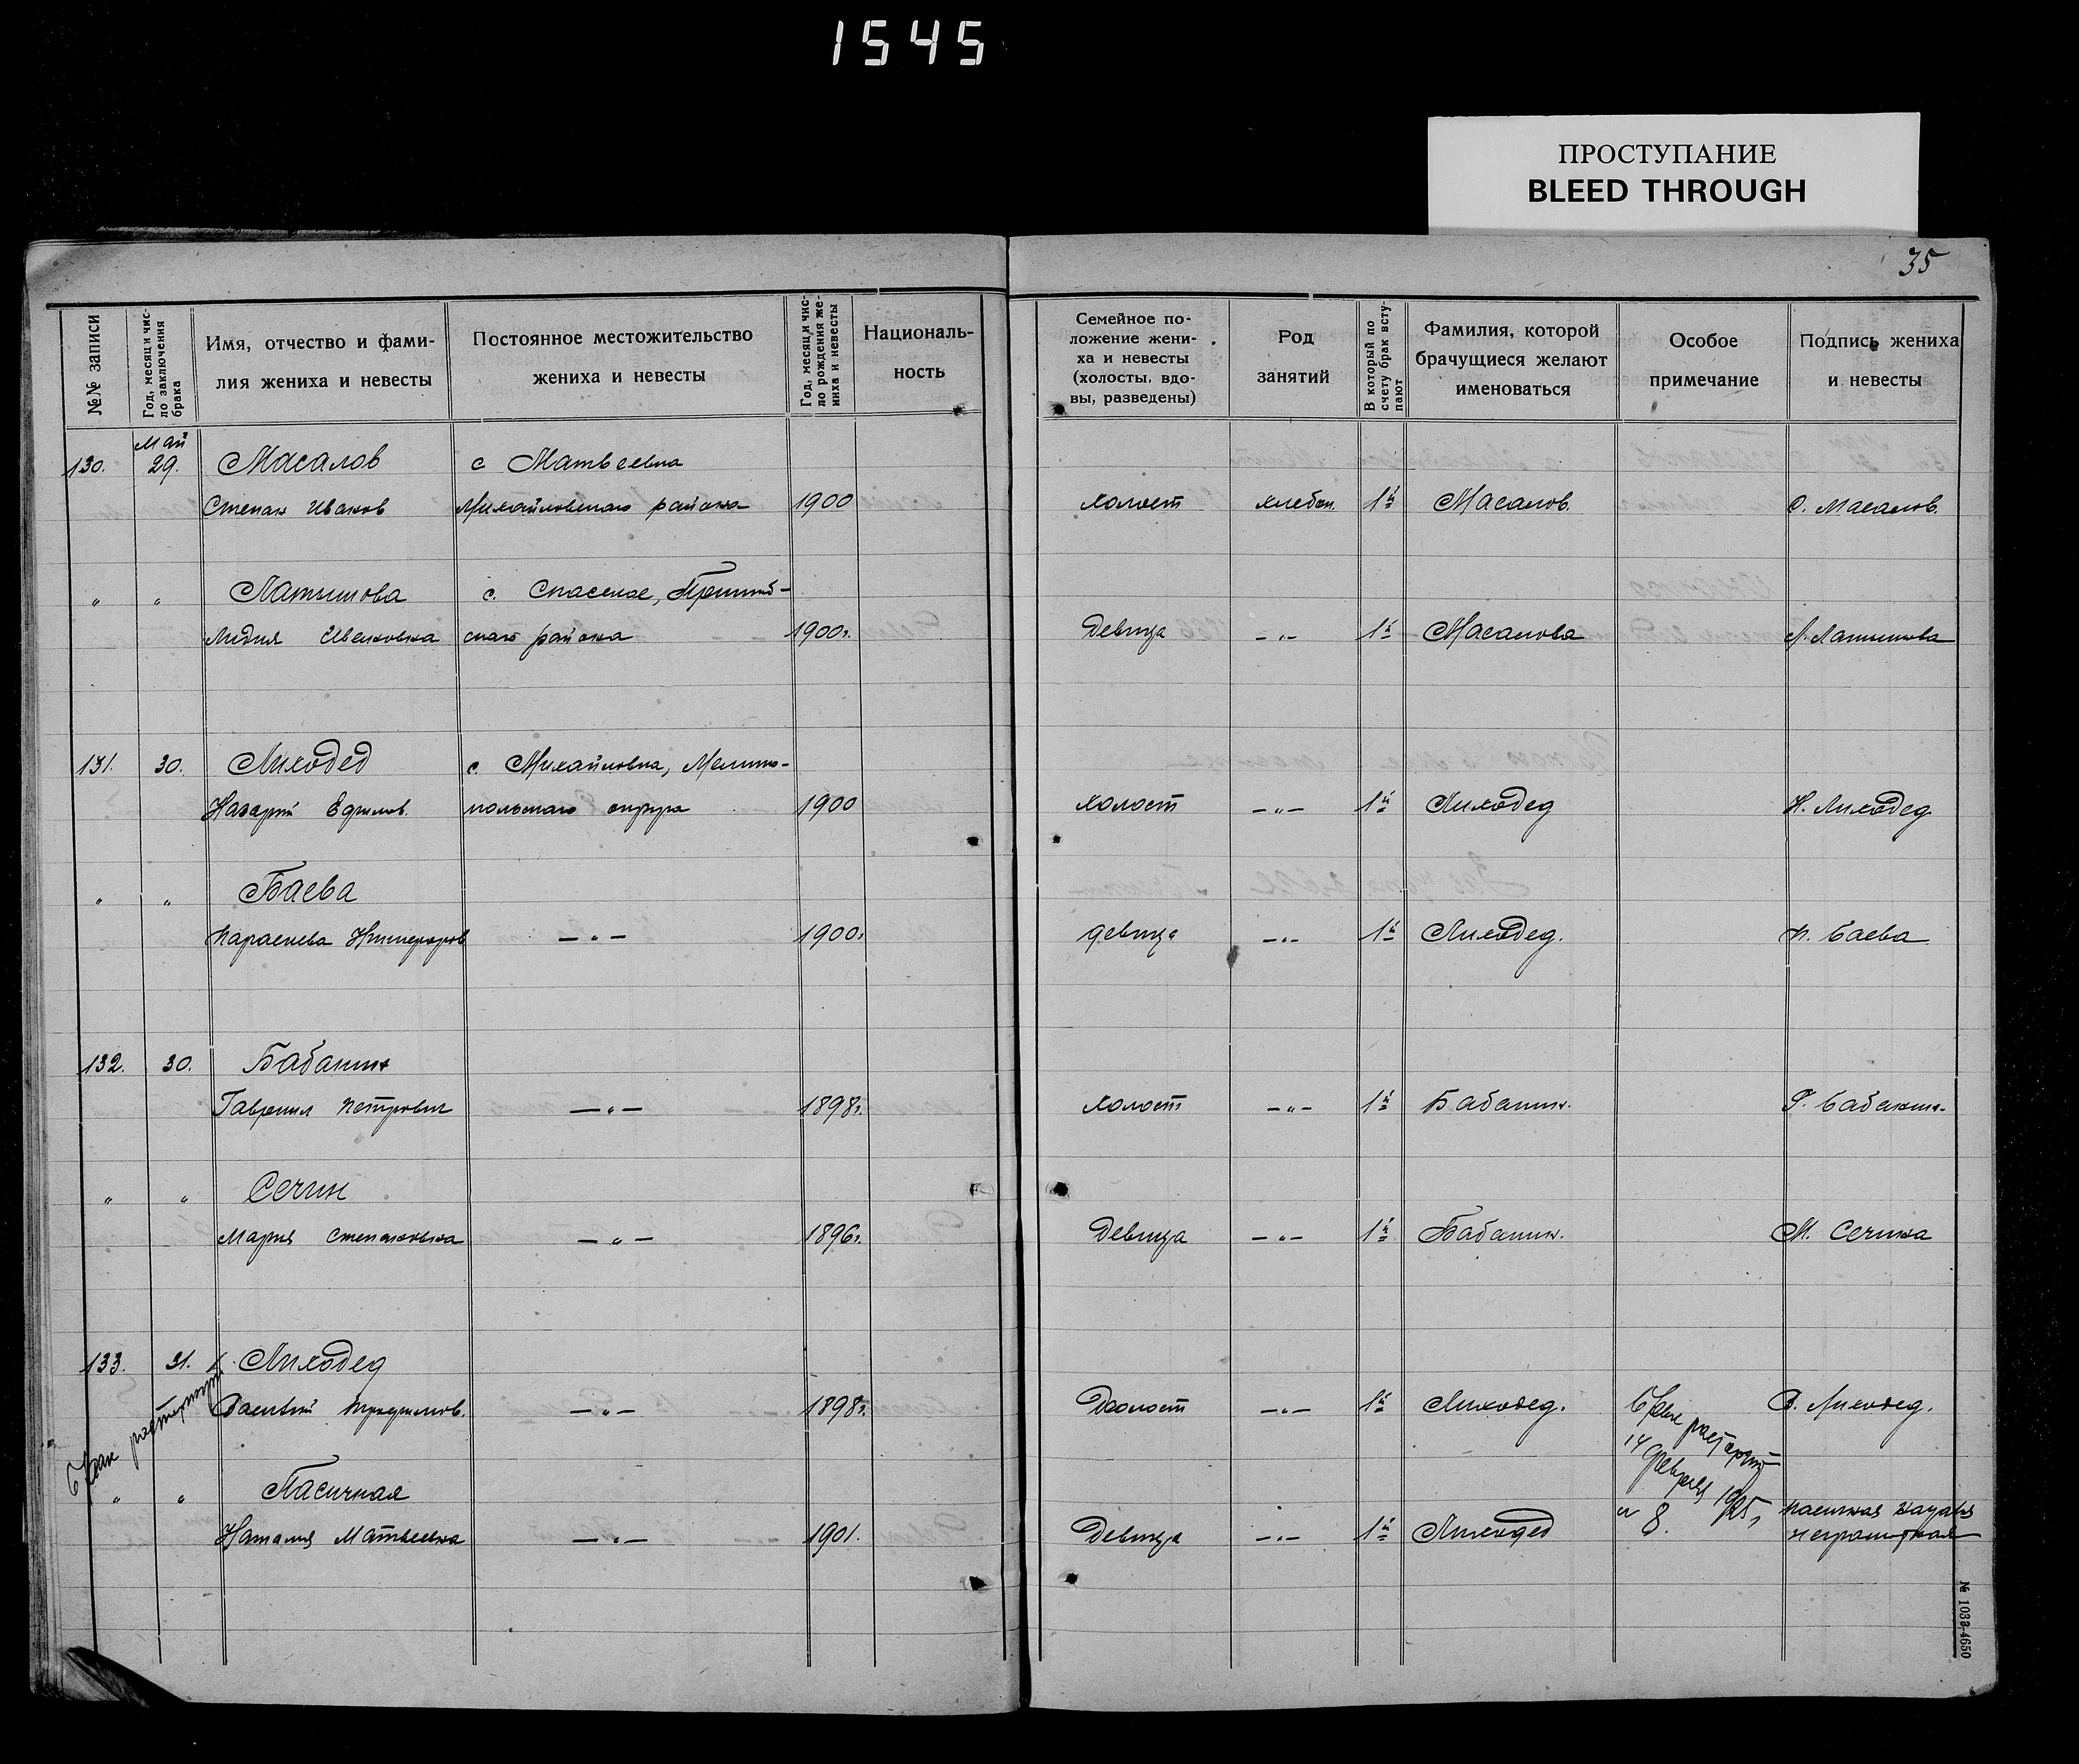 1545
ПРОСТУПАНИЕ
BLEED THROUGH
35
№№ записи
Год, месяц и чис-
ло заключения
брака
Имя, отчество и фами-
лия жениха и невесты
Постоянное местожительство
жениха и невесты
Год, месяц и чис-
ло рождения же-
ниха и невесты
Националь-
ность
Семейное по-
ложение жени-
ха и невесты
(холосты, вдо-
вы, разведены)
Род
занятий
В который по
счету брак всту-
пают
Фамилия, которой
брачущиеся желают
именоваться
Особое
примечание
Подпись жениха
и невесты
Май
130. 29. Масалов с Матвеевка
Степан Иванов Михайловского района 1900 холост хлебоп. 1й Масалов. С. Масалов.
„ „ Латышова с. Спасское,
Лидия Ивановна ского района 1900г. Девица —„— 1й Масалова Л. Латышова
131. 30. Лиходед с. Михайловка, Мелито-
Назарий Ефимов. польского округа 1900 холост —„— 1й Лиходед Н. Лиходед
„ „ Баева
Параскева Никифоров —„— 1900г девица —„— 1й Лиходед. П. Баева
132. 30. Бабанин
Гавриил Петрович —„— 1898г. холост —„— 1й Бабанин. Г. Бабанин.
„ „ Сечин
Мария Степановна —„— 1896г. Девица —„— 1й Бабанин. М. Сечина
133. 31. Лиходед
Василий Трофимов. —„— 1898г. холост —„— 1й Лиходед. В. Лиходед.
Брак расторгнут
Брак расторгнут
14 февраля 1925,
№ 8.
„ „ Пасичная
Наталия Матвеевна —„— 1901. Девица —„— 1й Лиходед Пасичная
неграмотная
№ 1033-4650